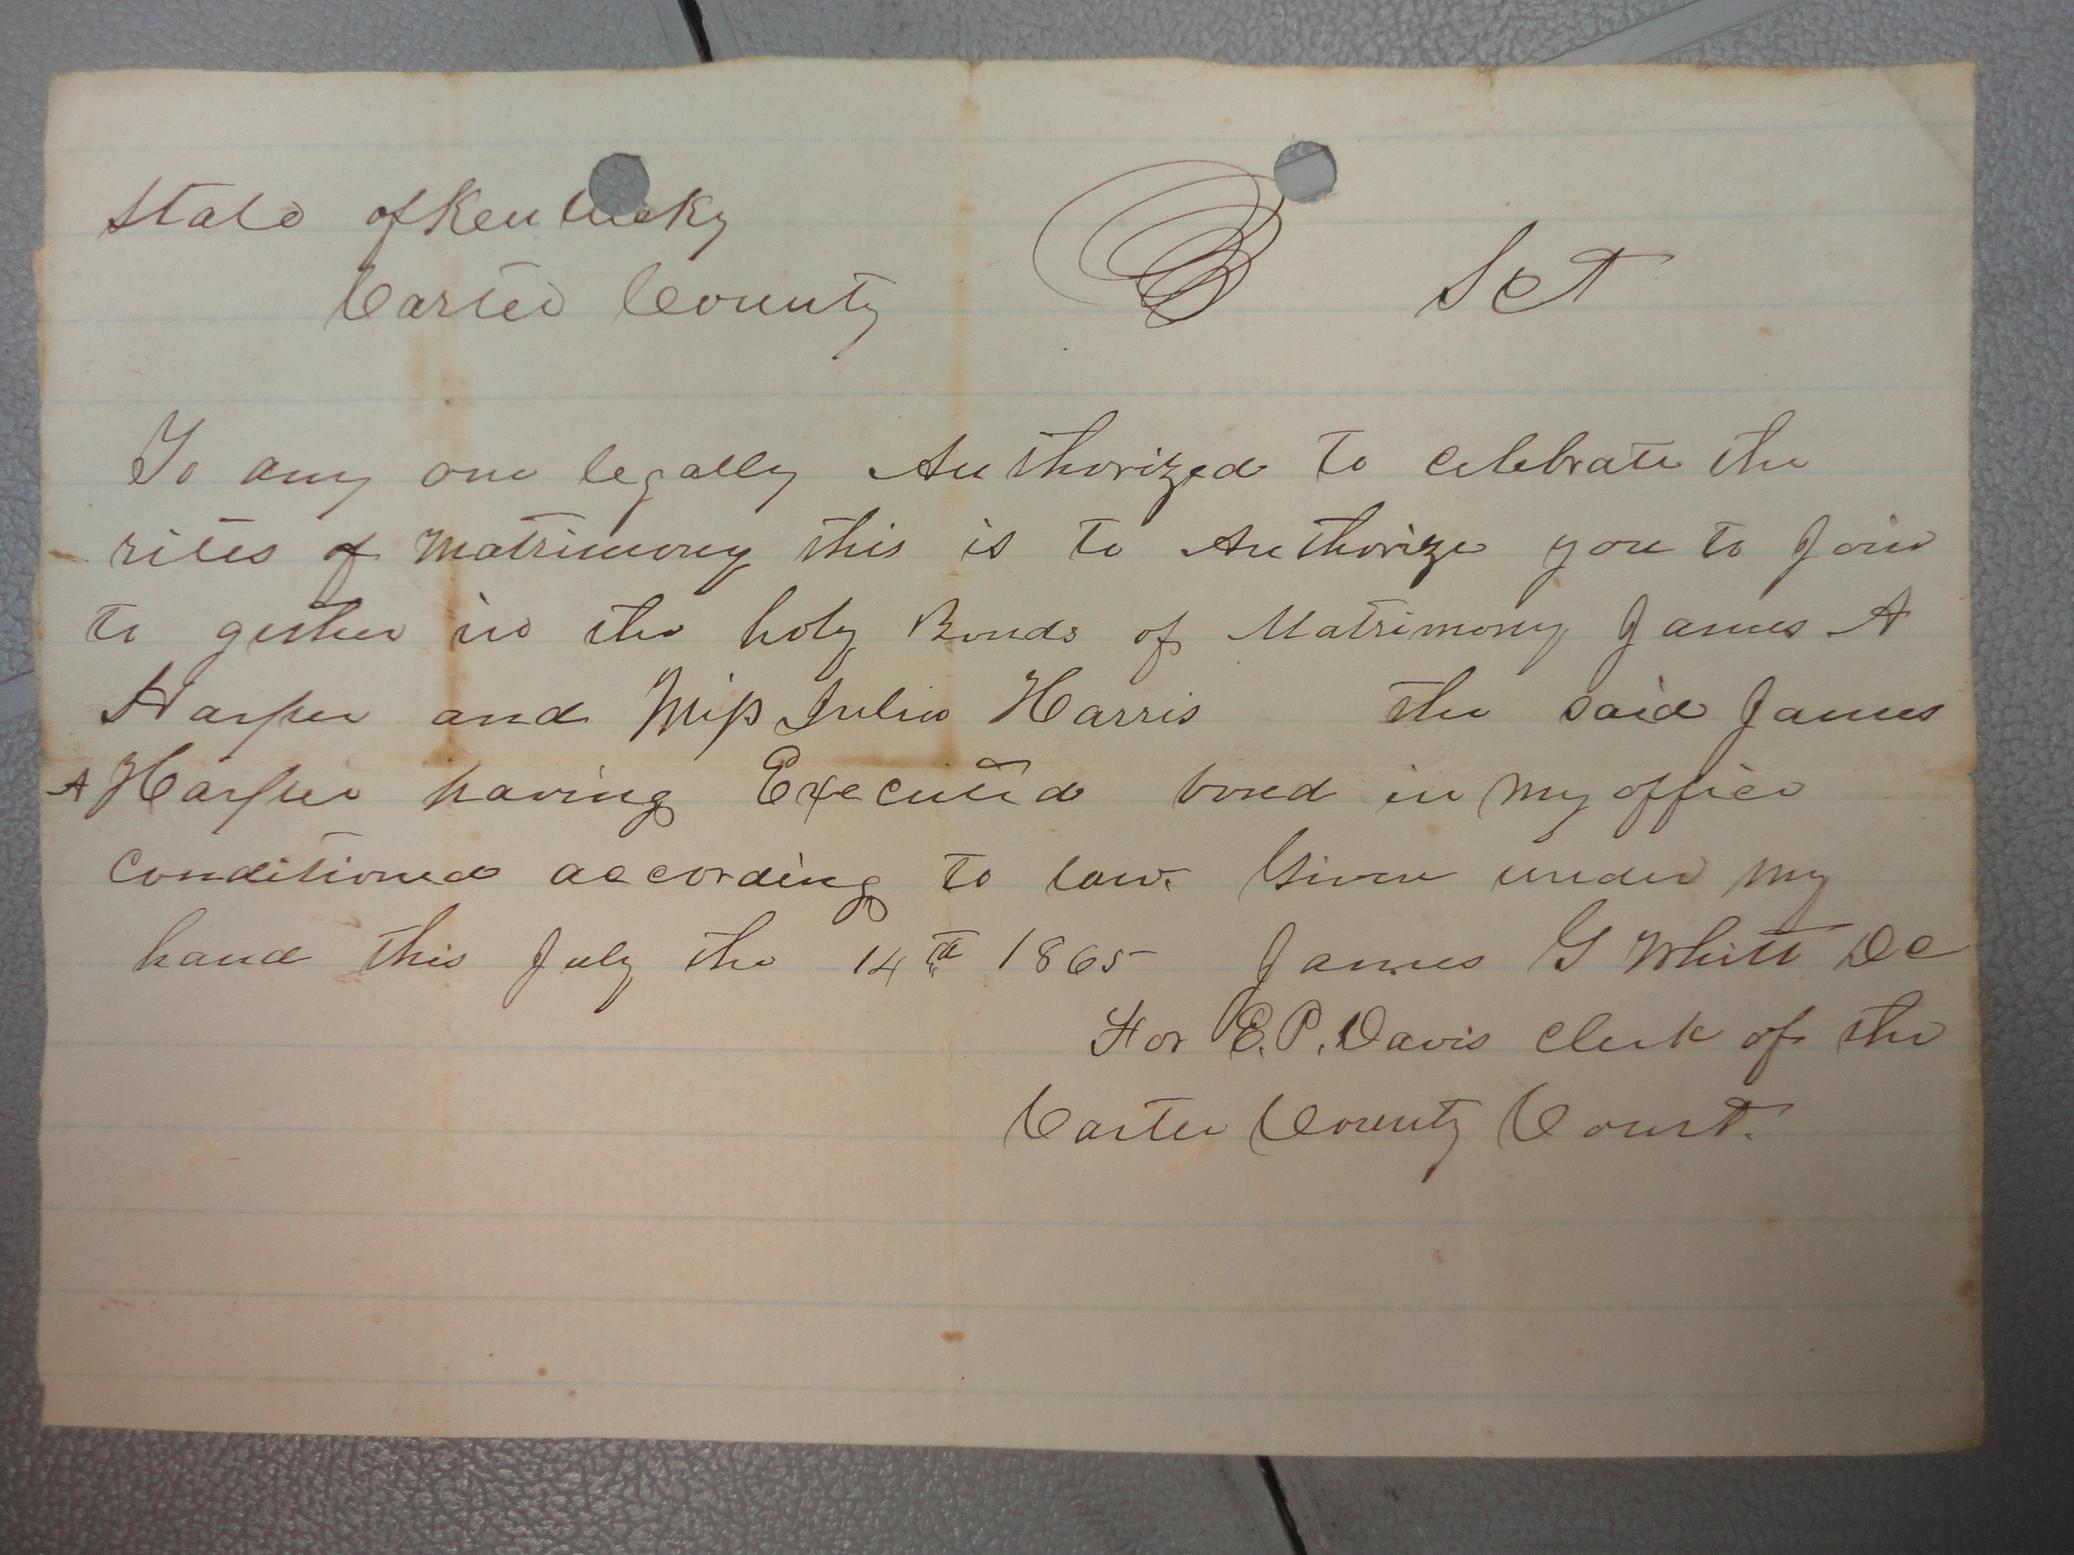 State of Kentucky
Carter County Sct
To any one legally Authorized to celebrate the
rites of Matrimony this is to Authorize you to Join
to gether in the holy Bonds of Matrimony James A
Harper and Miss Julia Harris the said James
A Harper having Executed bond in my office
Conditioned according to law. Given under my
hand this July the 14th 1865 James G Whitt DC
For E.P. Davis Clerk of the
Carter County Court.